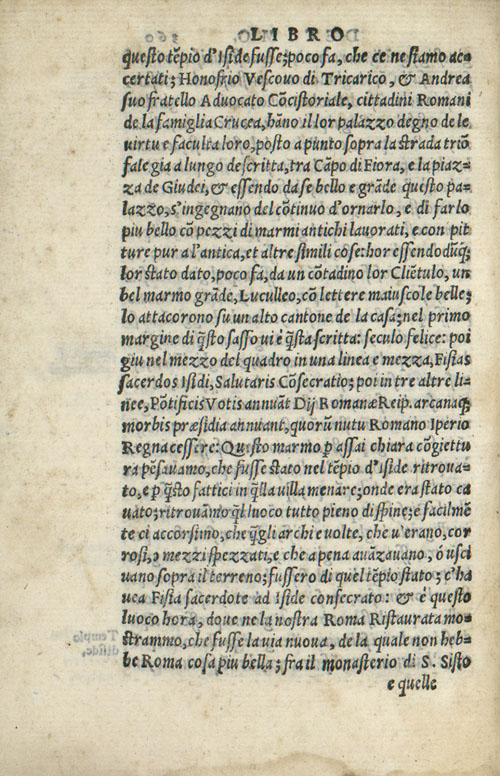 LIBRO
questo tẽpio d'Iside fusse; poco fa, che ce ne siamo ac=
certati; Honofrio Vescouo di Tricarico, & Andrea
suo fratello Aduocato Cõcistoriale, cittadini Romani
de la famiglia Crucea, hãno il lor palazzo degno de le
uirtu e faculta loro, posto a punto sopra la strada triõ
fale gia a lungo descritta, tra Cãpo di Fiora, e la piaz=
za de Giudei, & essendo da se bello e grãde questo pa=
lazzo, s'ingegnano del cõtinuo d'ornarlo, e di farlo
piu bello cõ pezzi di marmi antichi lauorati, e con pit
ture pur a l'antica, et altre simili cose: hor essendo dũq;
lor stato dato, poco fa, da un cõtadino lor Cliẽtulo, un
bel marmo grãde, Luculleo, cõ lettere maiuscole belle;
lo attacorono su un alto cantone de la casa; nel primo
margine di q̃sto sasso ui è q̃sta scritta: seculo felice: poi
giu nel mezzo del quadro in una linea e mezza, Fisias
sacerdos Isidi, Salutaris Cõsecratio; poi in tre altre li=
nee, Põtificis Votis annuãt Dij Romanæ Reip. arcanaq;
morbis præsidia annuant, quorũ nutu Romano Iperio
Regna cessere: Questo marmo p assai chiara cõgiettu
ra pẽsauamo, che fusse stato nel tẽpio d'Iside ritroua=
to, e p q̃sto fattici in q̃lla uilla menare; onde era stato ca
uato; ritrouãmo q̃l luoco tutto pieno di spine; e facilmẽ
te ci accorsimo, che q̃gli archi e uolte, che u'erano, cor
rosi, ò mezzi spezzati, e che a pena auãzauano, ò usci
uano sopra il terreno; fussero di quel tẽpio stato; c'ha
uea Fisia sacerdote ad Iside consecrato: & è questo
luoco hora, doue ne la nostra Roma Ristaurata mo=
strammo, che fusse la uia nuoua, de la quale non heb=
be Roma cosa piu bella; fra il monasterio di S. Sisto
e quelle